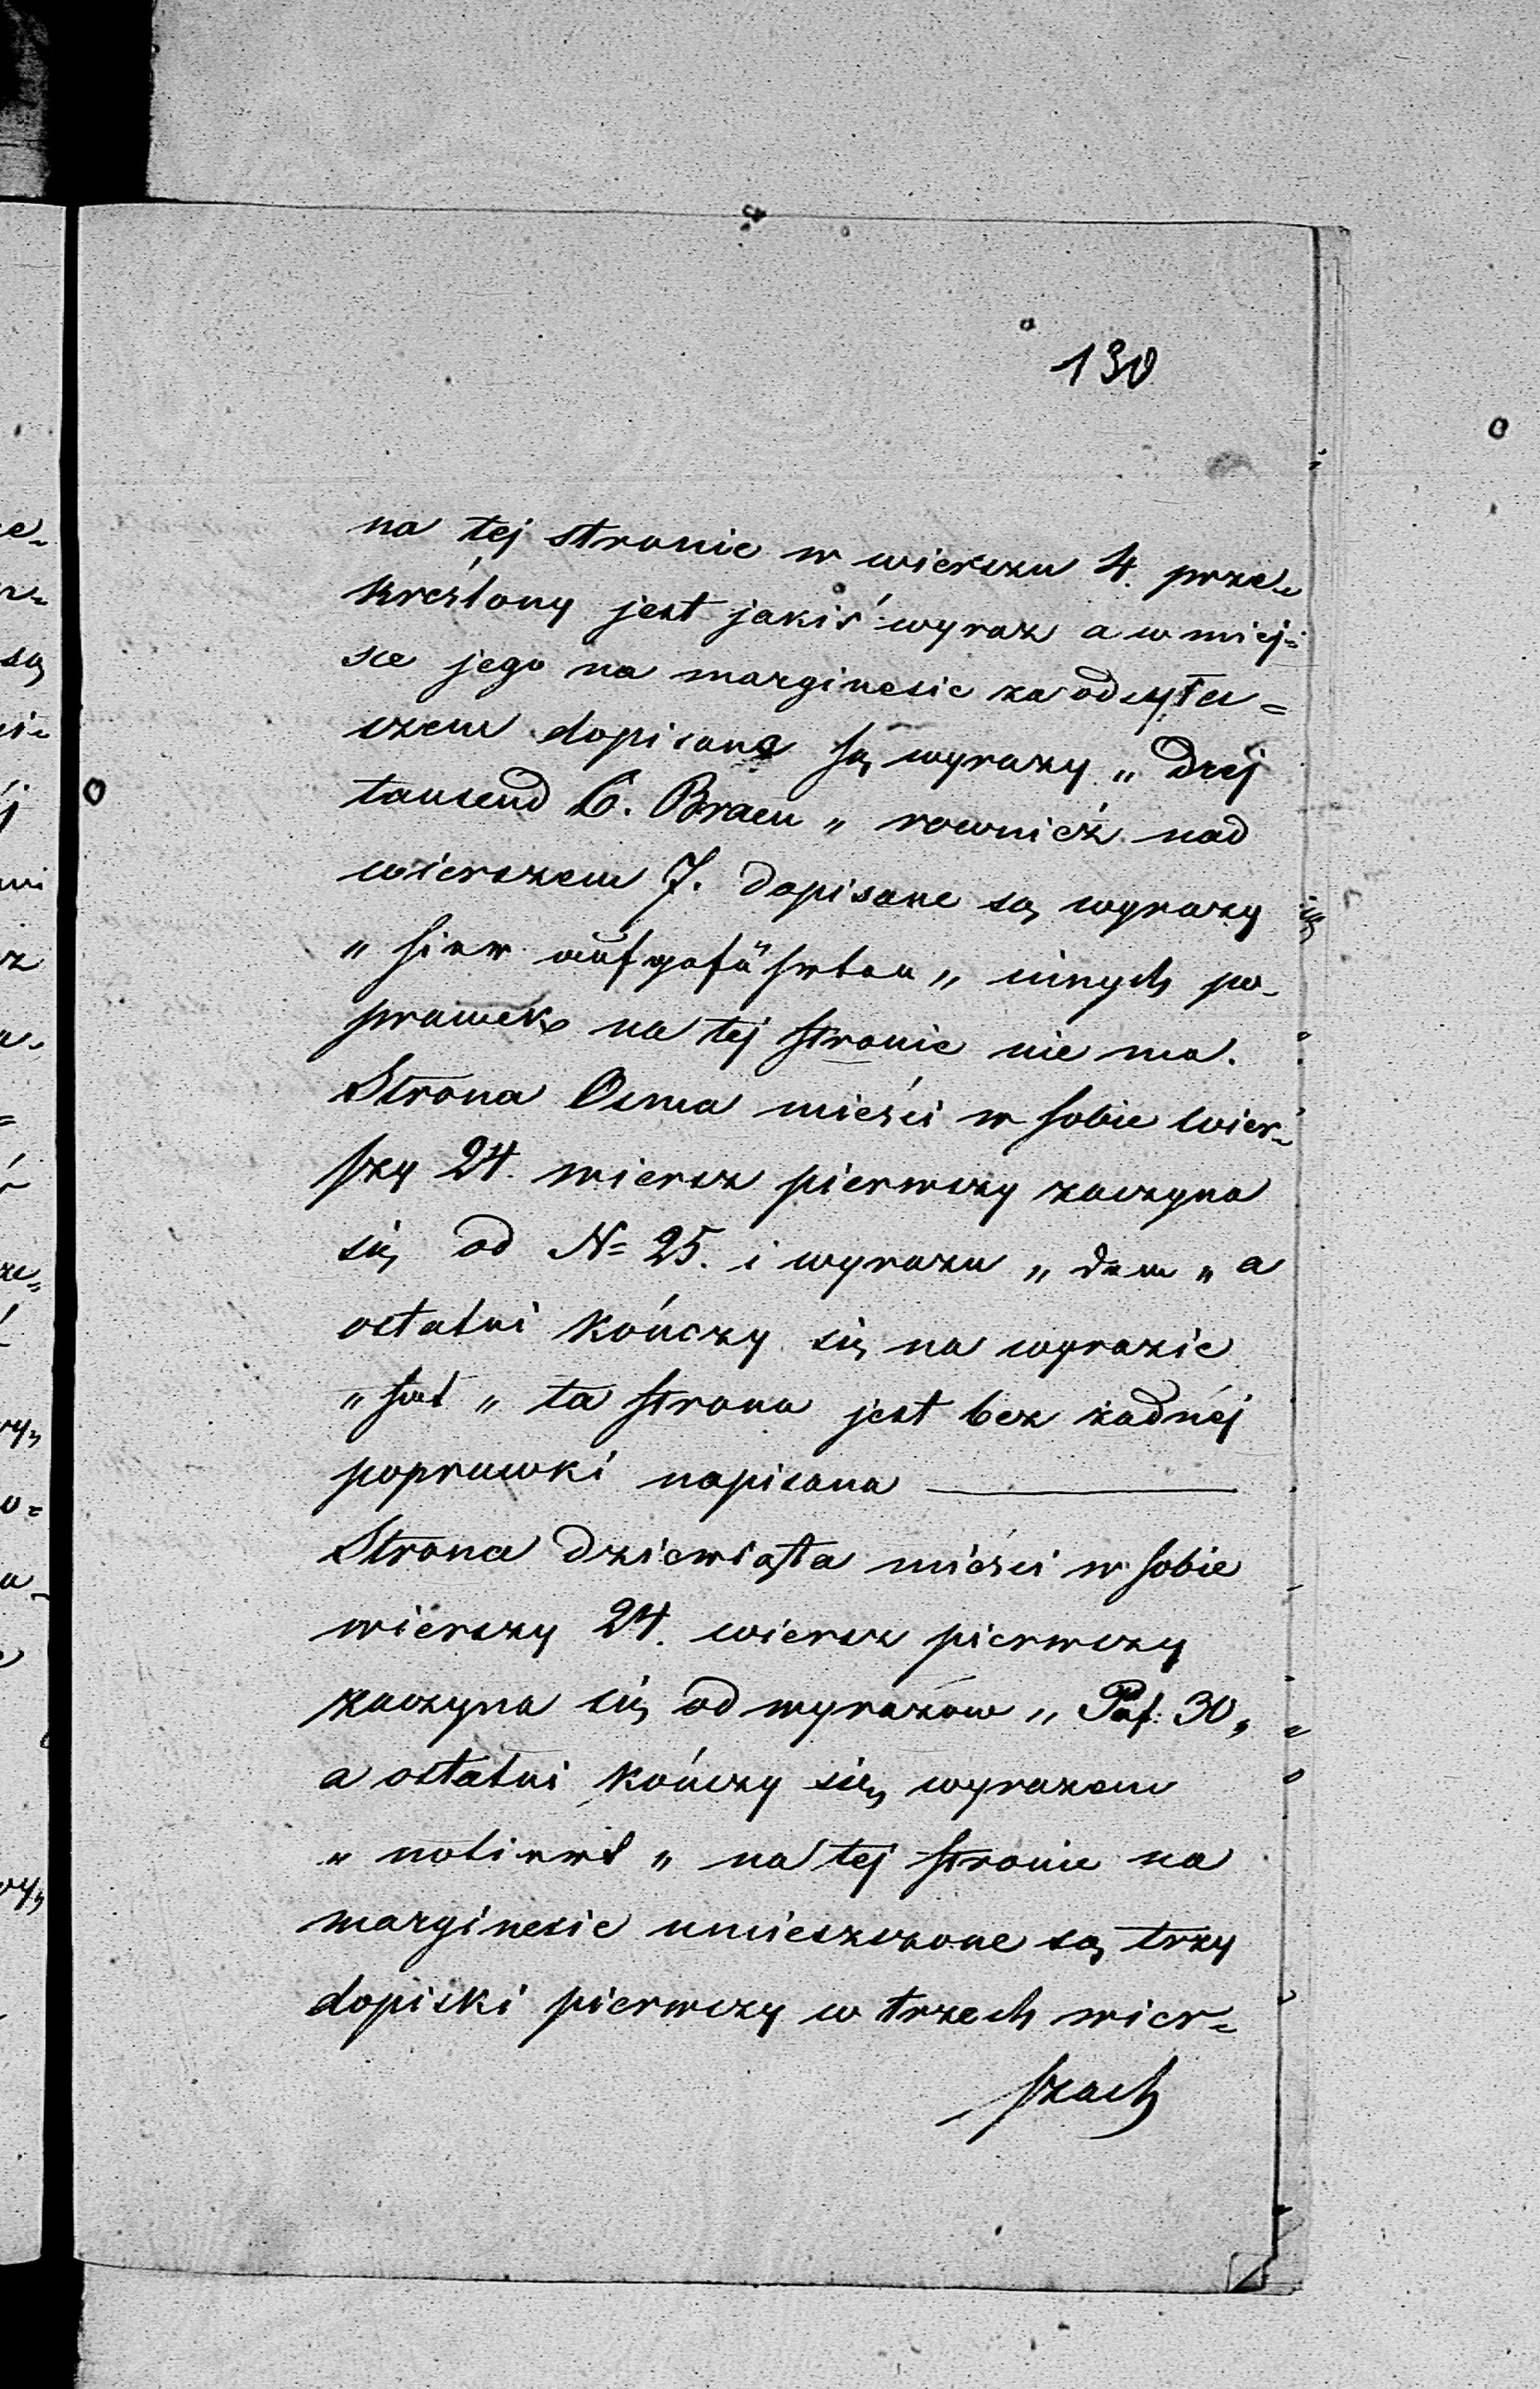 130
na tej stronie w wierszu 4. prze=
kreślony jest jakiś wyraz a w miej=
sce jego na marginesie za odsyła=
czem dopisane są wyrazy „ Drej
tausend C. Braeu „ rownież nad
wierszem 7. dopisane są wyrazy
„ hier aufgeführten „ innych po-
prawek na tej stronie nie ma.
Strona Osma mieści w sobie wier=
szy 24. wiersz pierwszy zaczyna
się od N= 25. i wyrazu „ dem „ a
ostatni kończy się na wyrazie
„ hat „ ta strona jest bez żadnéj
poprawki napisana
Strona dziewiąta mieści w sobie
wierszy 24. wiersz pierwszy
zaczyna się od wyrazow „ Pos: 30 „
a ostatni kończy się wyrazem
„ notirt „ na tej stronie na
marginesie umieszczone są trzy
dopiski pierwszy w trzech wier=
szach